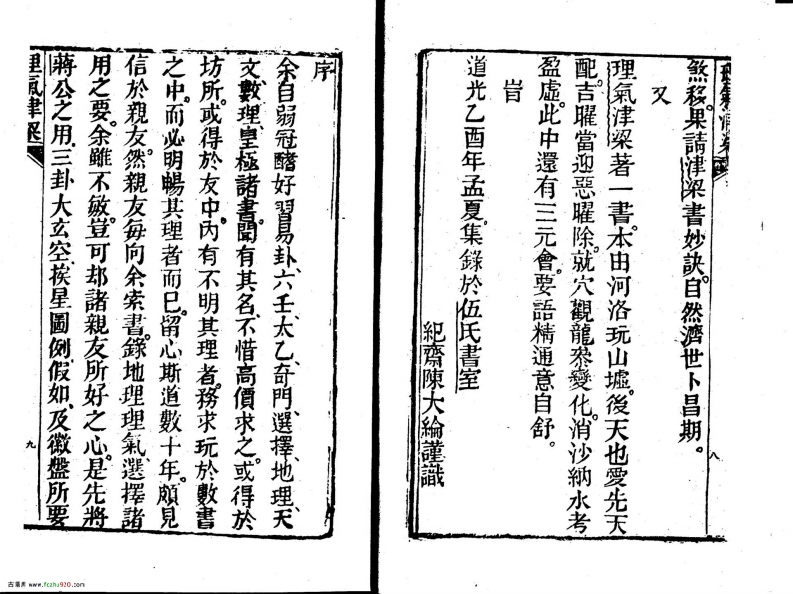 煞移果請津梁書妙訣自然濟世卜昌期。
又
理氣津梁著一書。本由河洛玩山墟。後天也愛先天
配。吉曜當迎惡曜除。就穴觀龍叅變化。消沙納水考
盈虛。此中還有三元會。要語精通意自舒。
旹
道光乙酉年孟夏集錄於伍氏書室
紀齋陳大綸謹識
八
序
余自弱冠醝好習易卦、六壬、太乙、奇門、選擇、地理、天
文、數理、皇極諸書。聞有其名、不惜高價求之。或得於
坊所。或得於友中。內有不明其理者。務求玩於數書
之中。而必明暢其理者而已。留心斯道數十年。頗見
信於親友。然親友每向余索書。錄地理理氣、選擇諸
用之要。余雖不敏。豈可却諸親友所好之心。是先將
蔣公之用、三卦大玄空、挨星圖例、假如、及徽盤所要
理氣津梁
九
古籍库 www.fczhu920.com